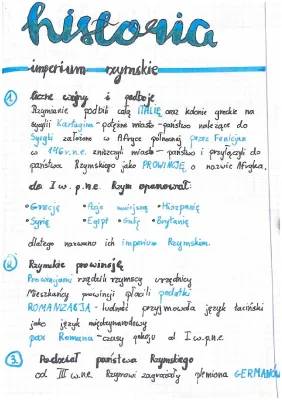 historia
imperium rzymskie
① liczne wojny i podboje
Rzymianie podbili całą ITALIĘ oraz kolonie greckie na
Sycylii Kartagina - potężne miasto-państwo należące do
Syrii założone w Afryce północnej przez Fenicjan
w 146 r. n.e. zniszczyli miasto - państwo i przyłączyli do
państwa Rzymskiego jako PROWINCJĘ o nazwie Afryka.
do I w. p.n.e. Rzym opanował:
• Grecję • Azję mniejszą • Hiszpanię
• Syrię • Egipt • Galię • Brytanię
dlatego nazwano ich imperium Rzymskim.
② Rzymskie prowincje
Prowincjami rządzili rzymscy urzędnicy
Mieszkańcy prowincji płacili podatki
ROMANIZACJA - ludność przyjmowała język łaciński
jako język międzynarodowy
pax Romana - czasy pokoju od I w. p.n.e.
③ Podział państwa Rzymskiego
od III w. n.e. Rzymowi zagrażały plemiona GERMANÓW